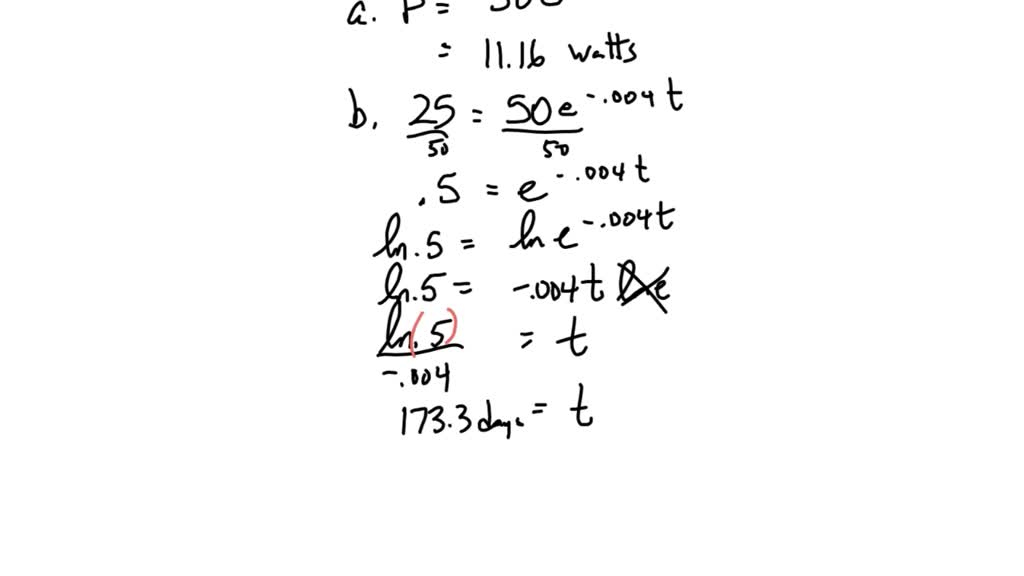 a. P = 50e
= 11.16 watts
b. 25/50 = 50e^-.004t/50
.5 = e^-.004t
ln.5 = ln e^-.004t
ln.5 = -.004t ln e
ln(.5)/-.004 = t
173.3 days = t